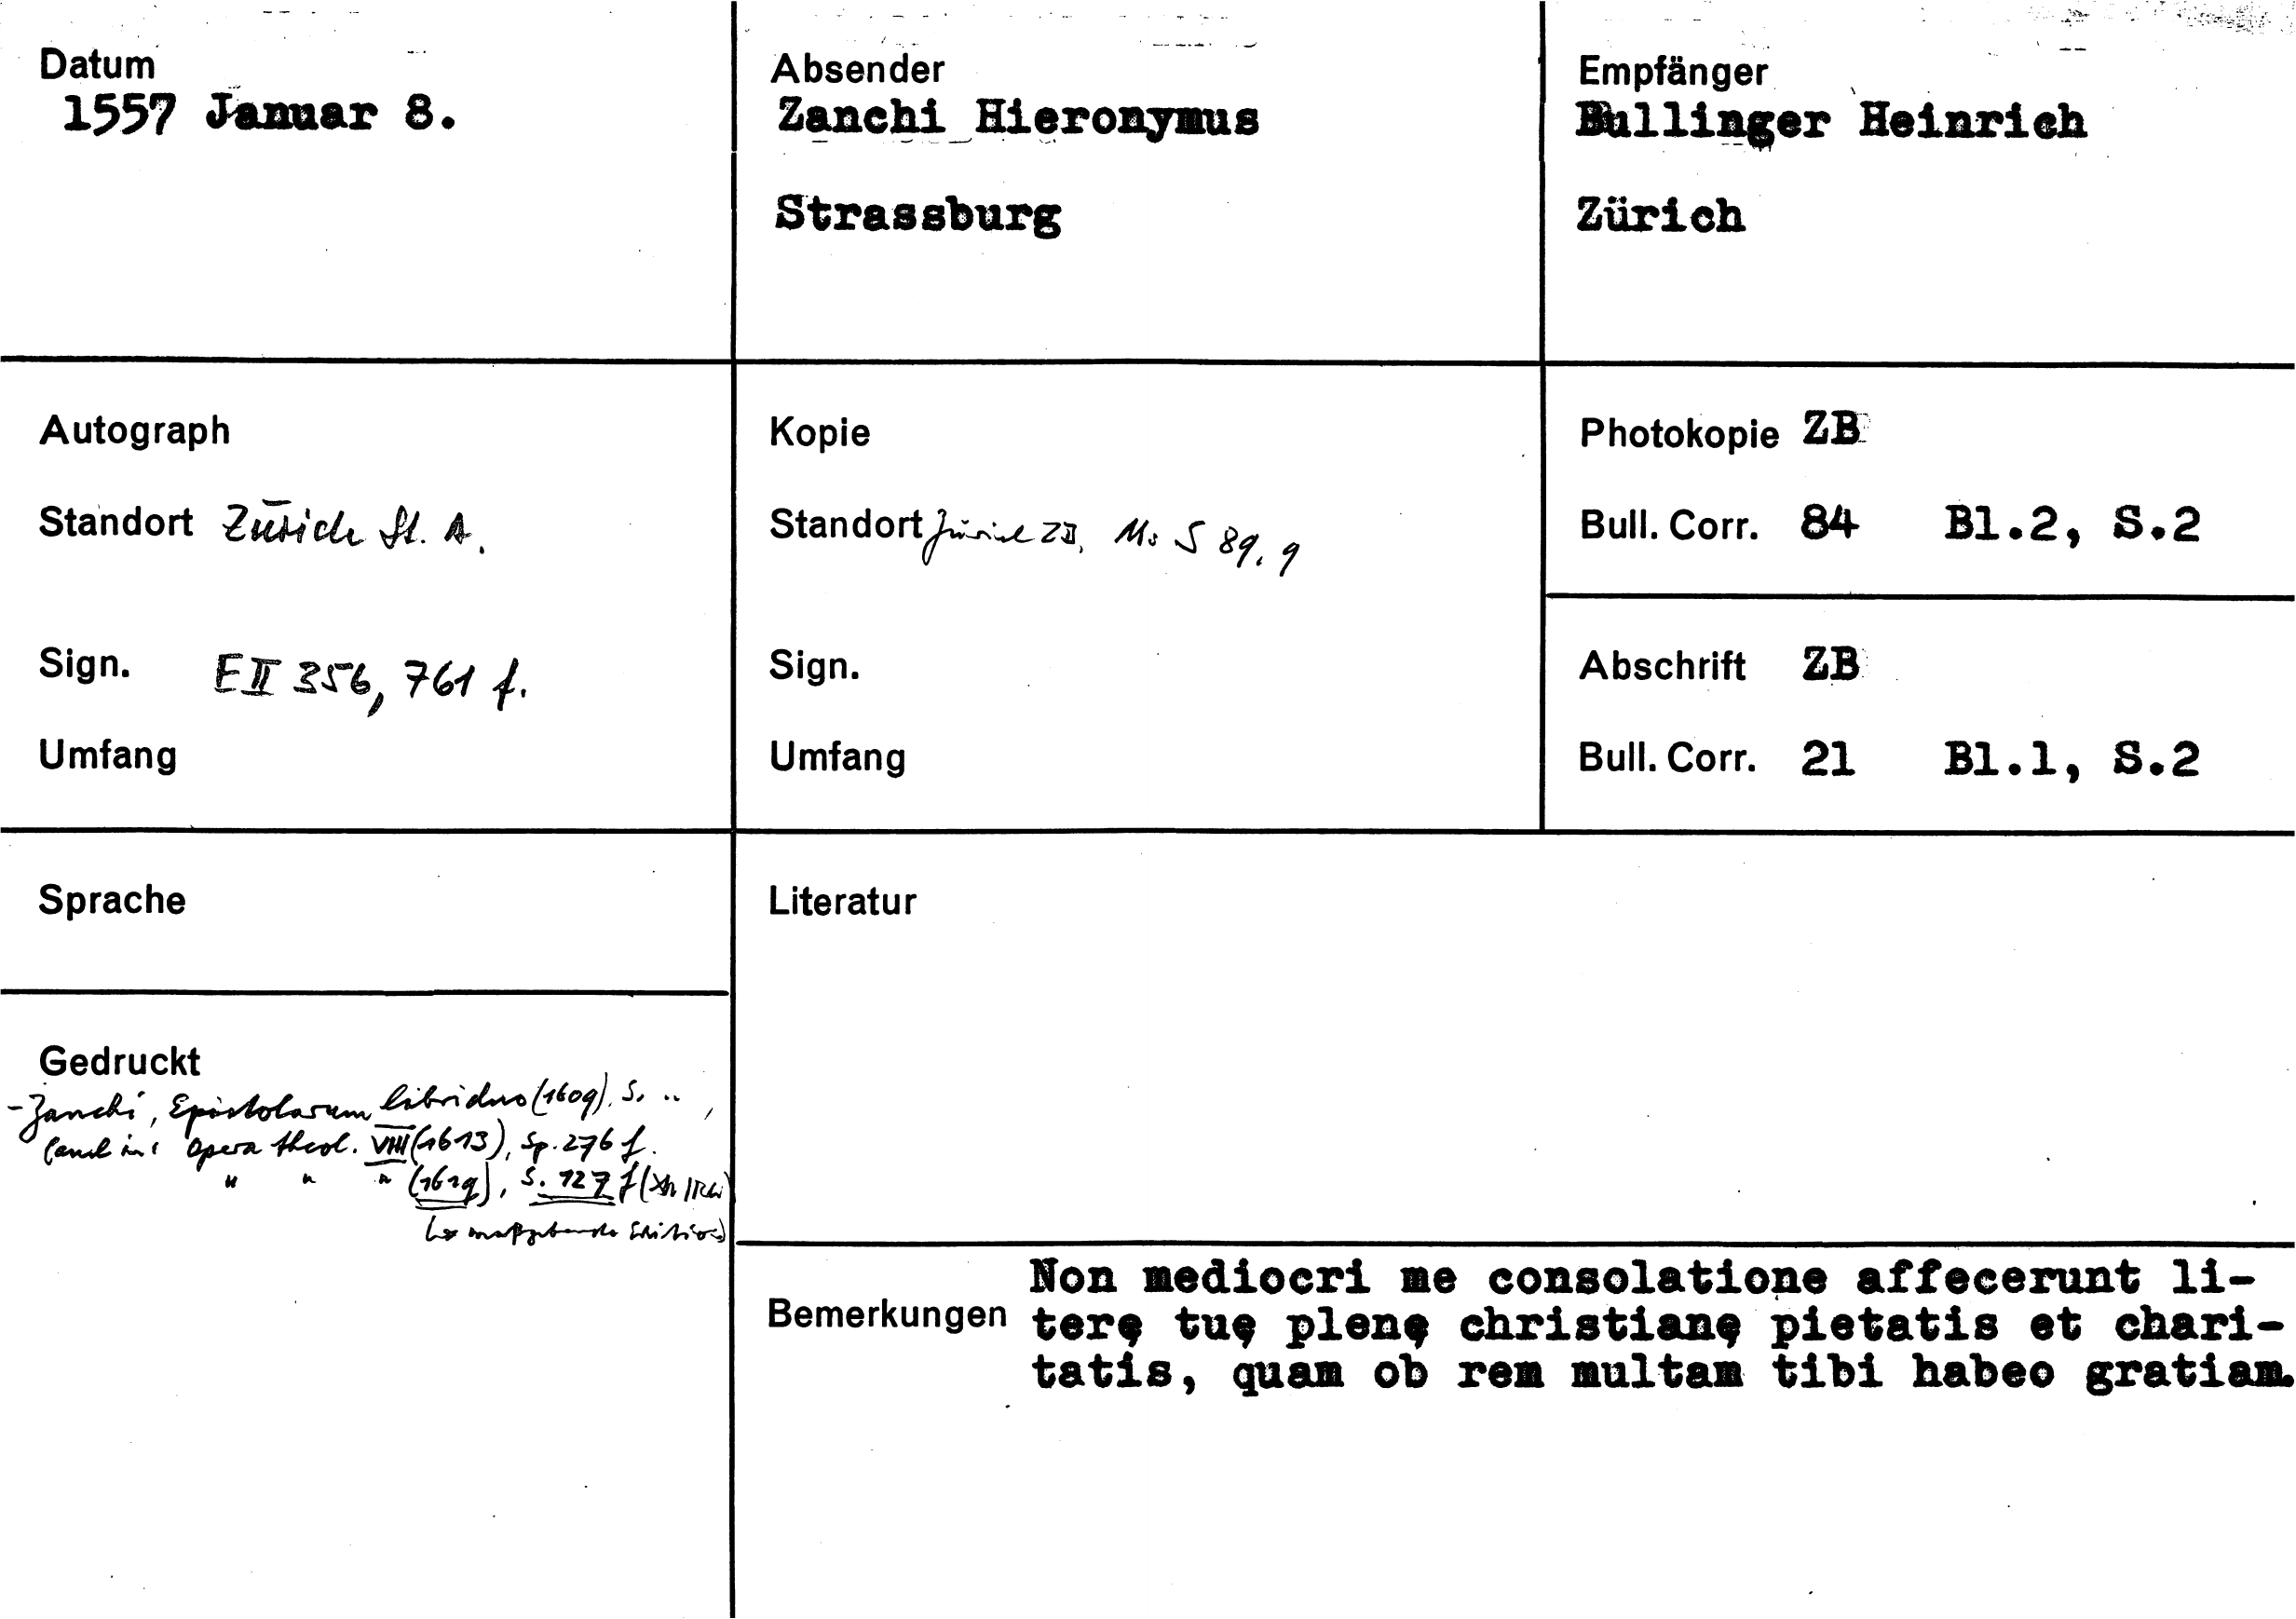 Datum
1557 Januar 8.
Absender
Zanchi Hieronymus
Strassburg
Empfänger
Bullinger Heinrich
Zürich
Autograph
Standort Zürich St. A.
Sign. E II 356, 761 f.
Umfang
Kopie
Standort Zürich ZB, Ms S 89, 9
Sign.
Umfang
Photokopie ZB
Bull. Corr. 84 Bl.2, S.2
Abschrift ZB
Bull. Corr. 21 Bl.1, S.2
Sprache
Literatur
Gedruckt
- Zanchi, Epistolarum libri duo (1609), S. ..,
(auch in: Opera theol. VIII (1613), Sp. 276 f.
" " " (1619), S. 127 f
(→ maßgebende Edition)
Bemerkungen
Non mediocri me consolatione affecerunt li-
terę tuę plenę christianę pietatis et chari-
tatis, quam ob rem multam tibi habeo gratiam.